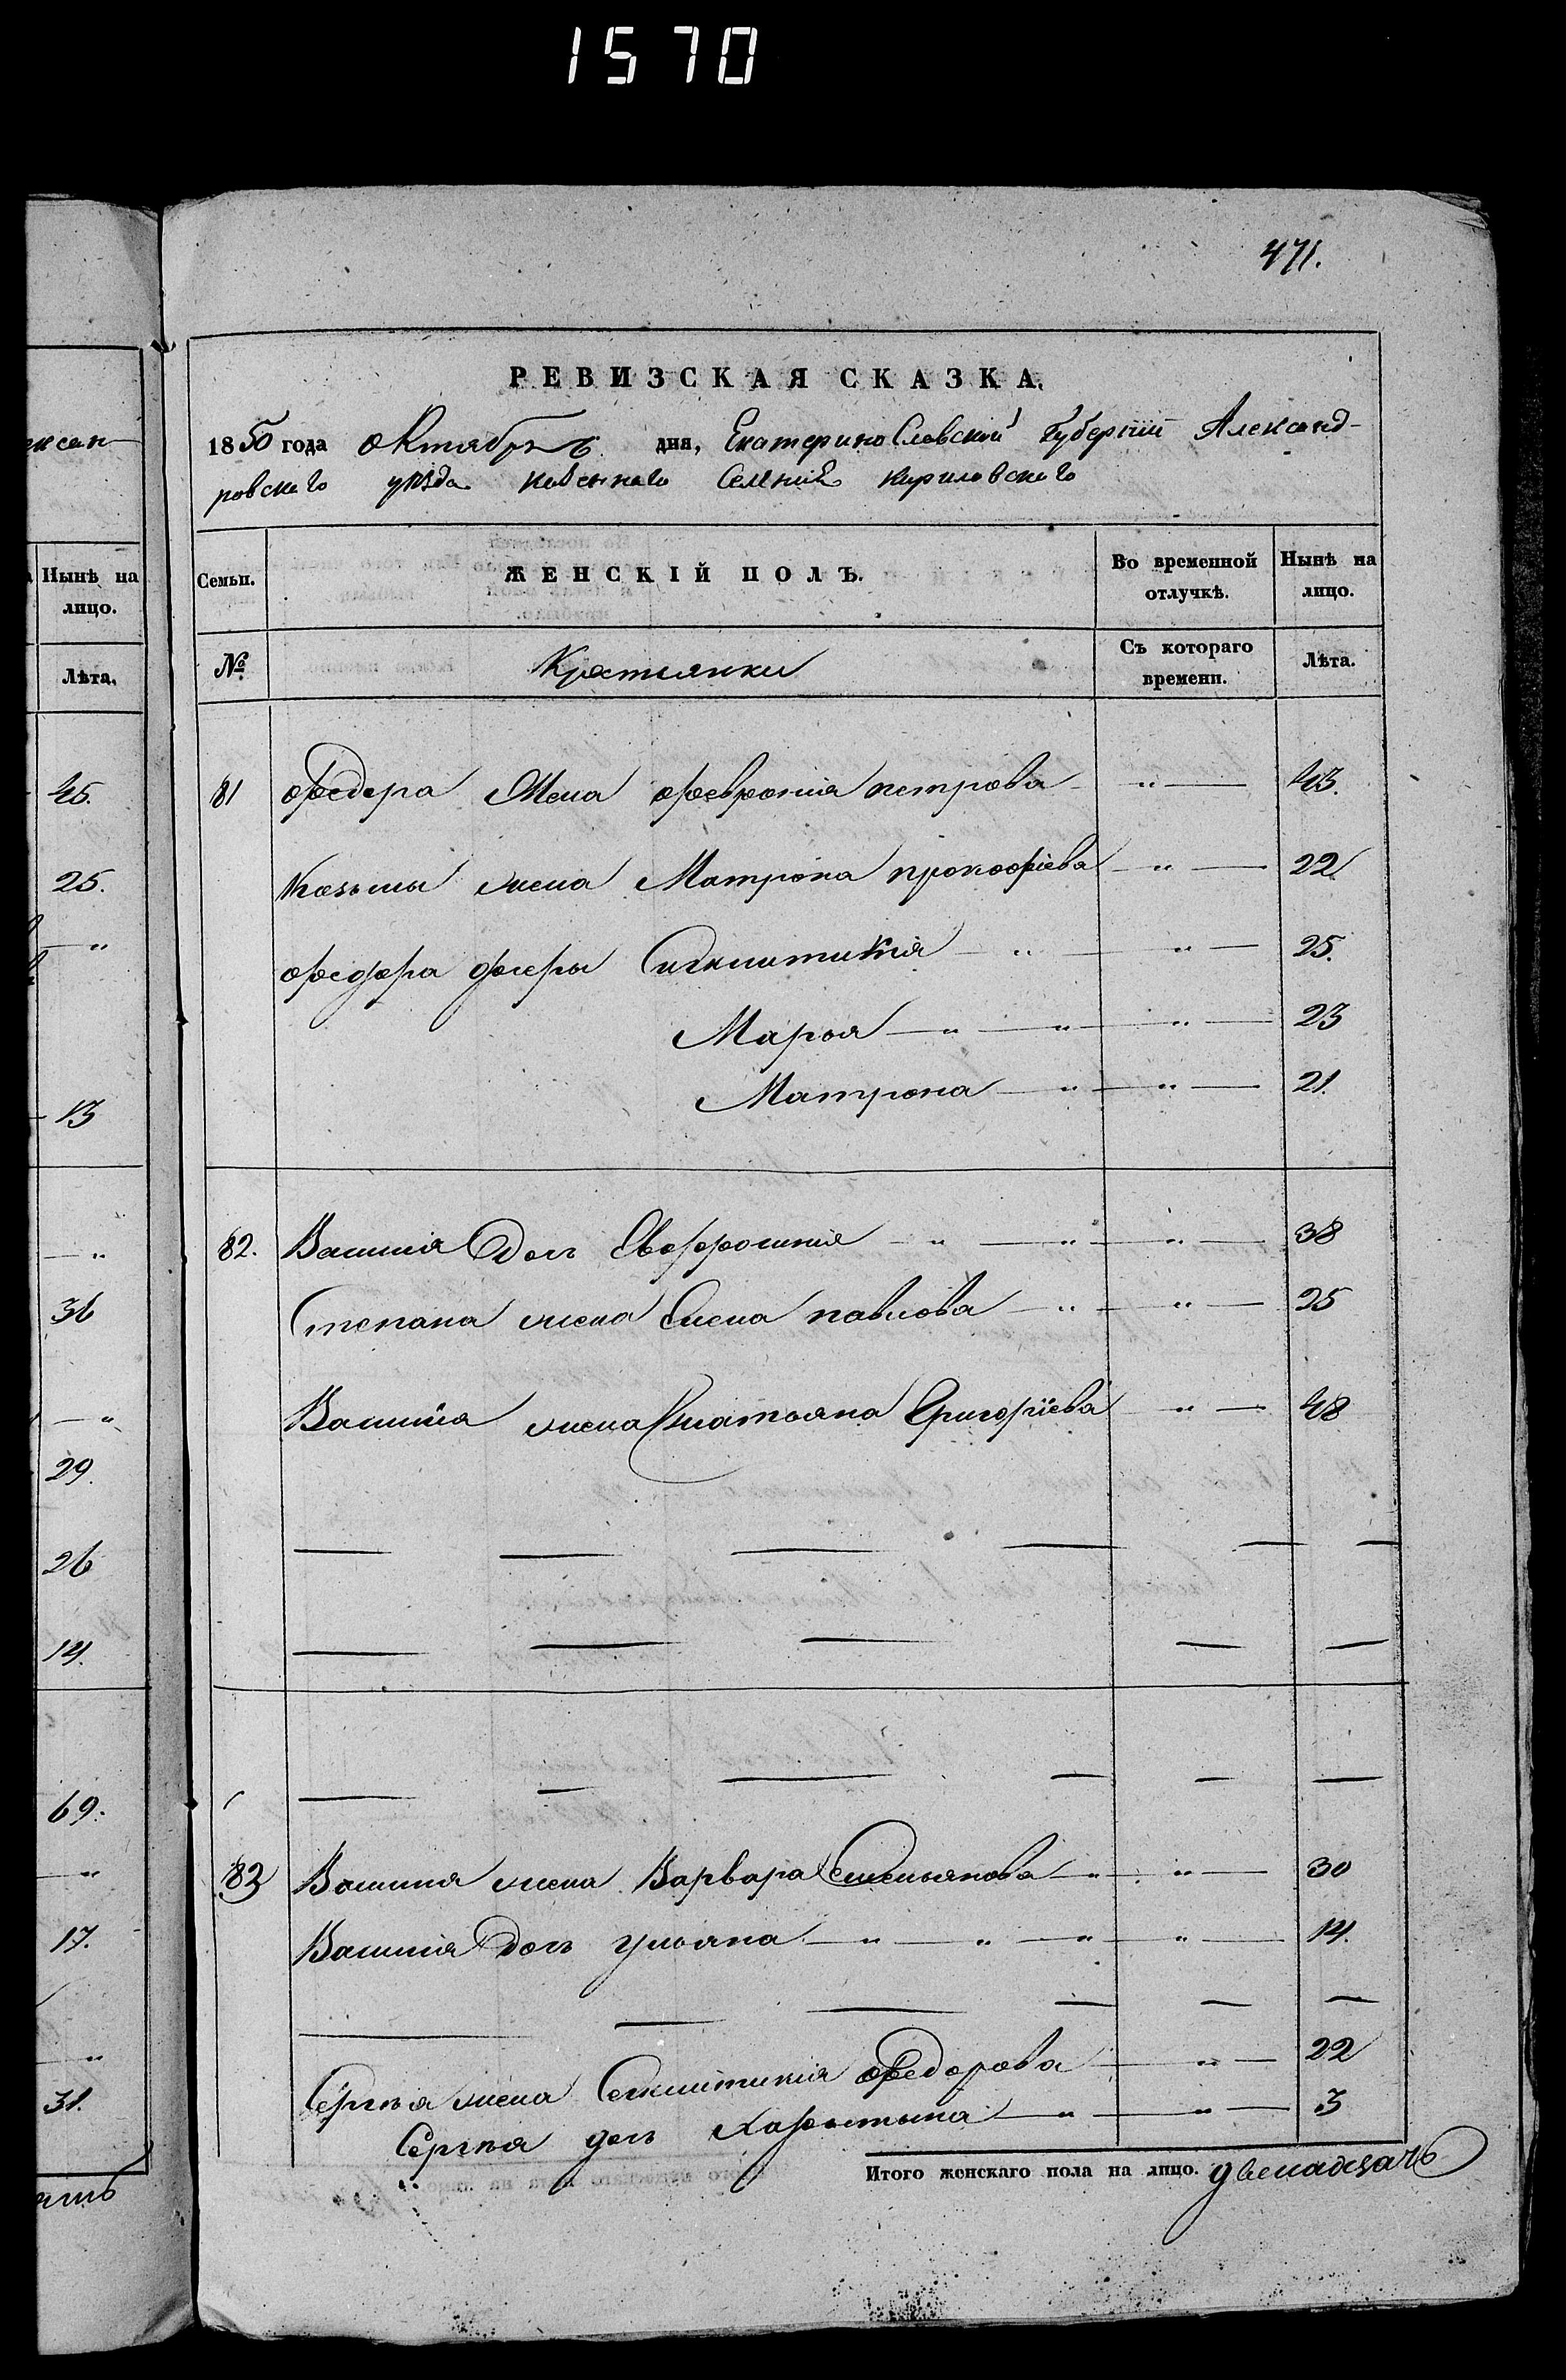 1570
471.
РЕВИЗСКАЯ СКАЗКА.
1850 года октябрь дня, Екатеринославской Губернии Александ-
ровскаго уѣзда казеннаго Селения Кириловскаго
ексан
Нынѣ на лицо.
Лѣта.
Семьи. ЖЕНСКІЙ ПОЛЪ. Во временной отлучкѣ. Нынѣ на лицо.
№ Крестьянки Съ котораго времени. Лѣта.
81 Федора Жена Феврония петрова " 43.
Козьмы жена Матрона прокофіева " 22
Федора дочеры Синклитикия " " 25.
Марья " " " 23
Матрона " " 21.
82. Василия Дочь Евфросиния " " " 38
Степана жена Елена павлова " " 25
Василия жена Татьяна Григоріева " 48
83 Василия жена Варвара Емельянова " " 30
Василия Дочь ульяна " " " " 14.
Сергѣя жена Секлитикия Федорова " 22
Сергѣя дочь Харытына " " 3
Итого женскаго пола на лицо. двенадцать
45.
25.
"
13
"
36
"
29.
26
14.
69.
"
17.
"
31.
ять